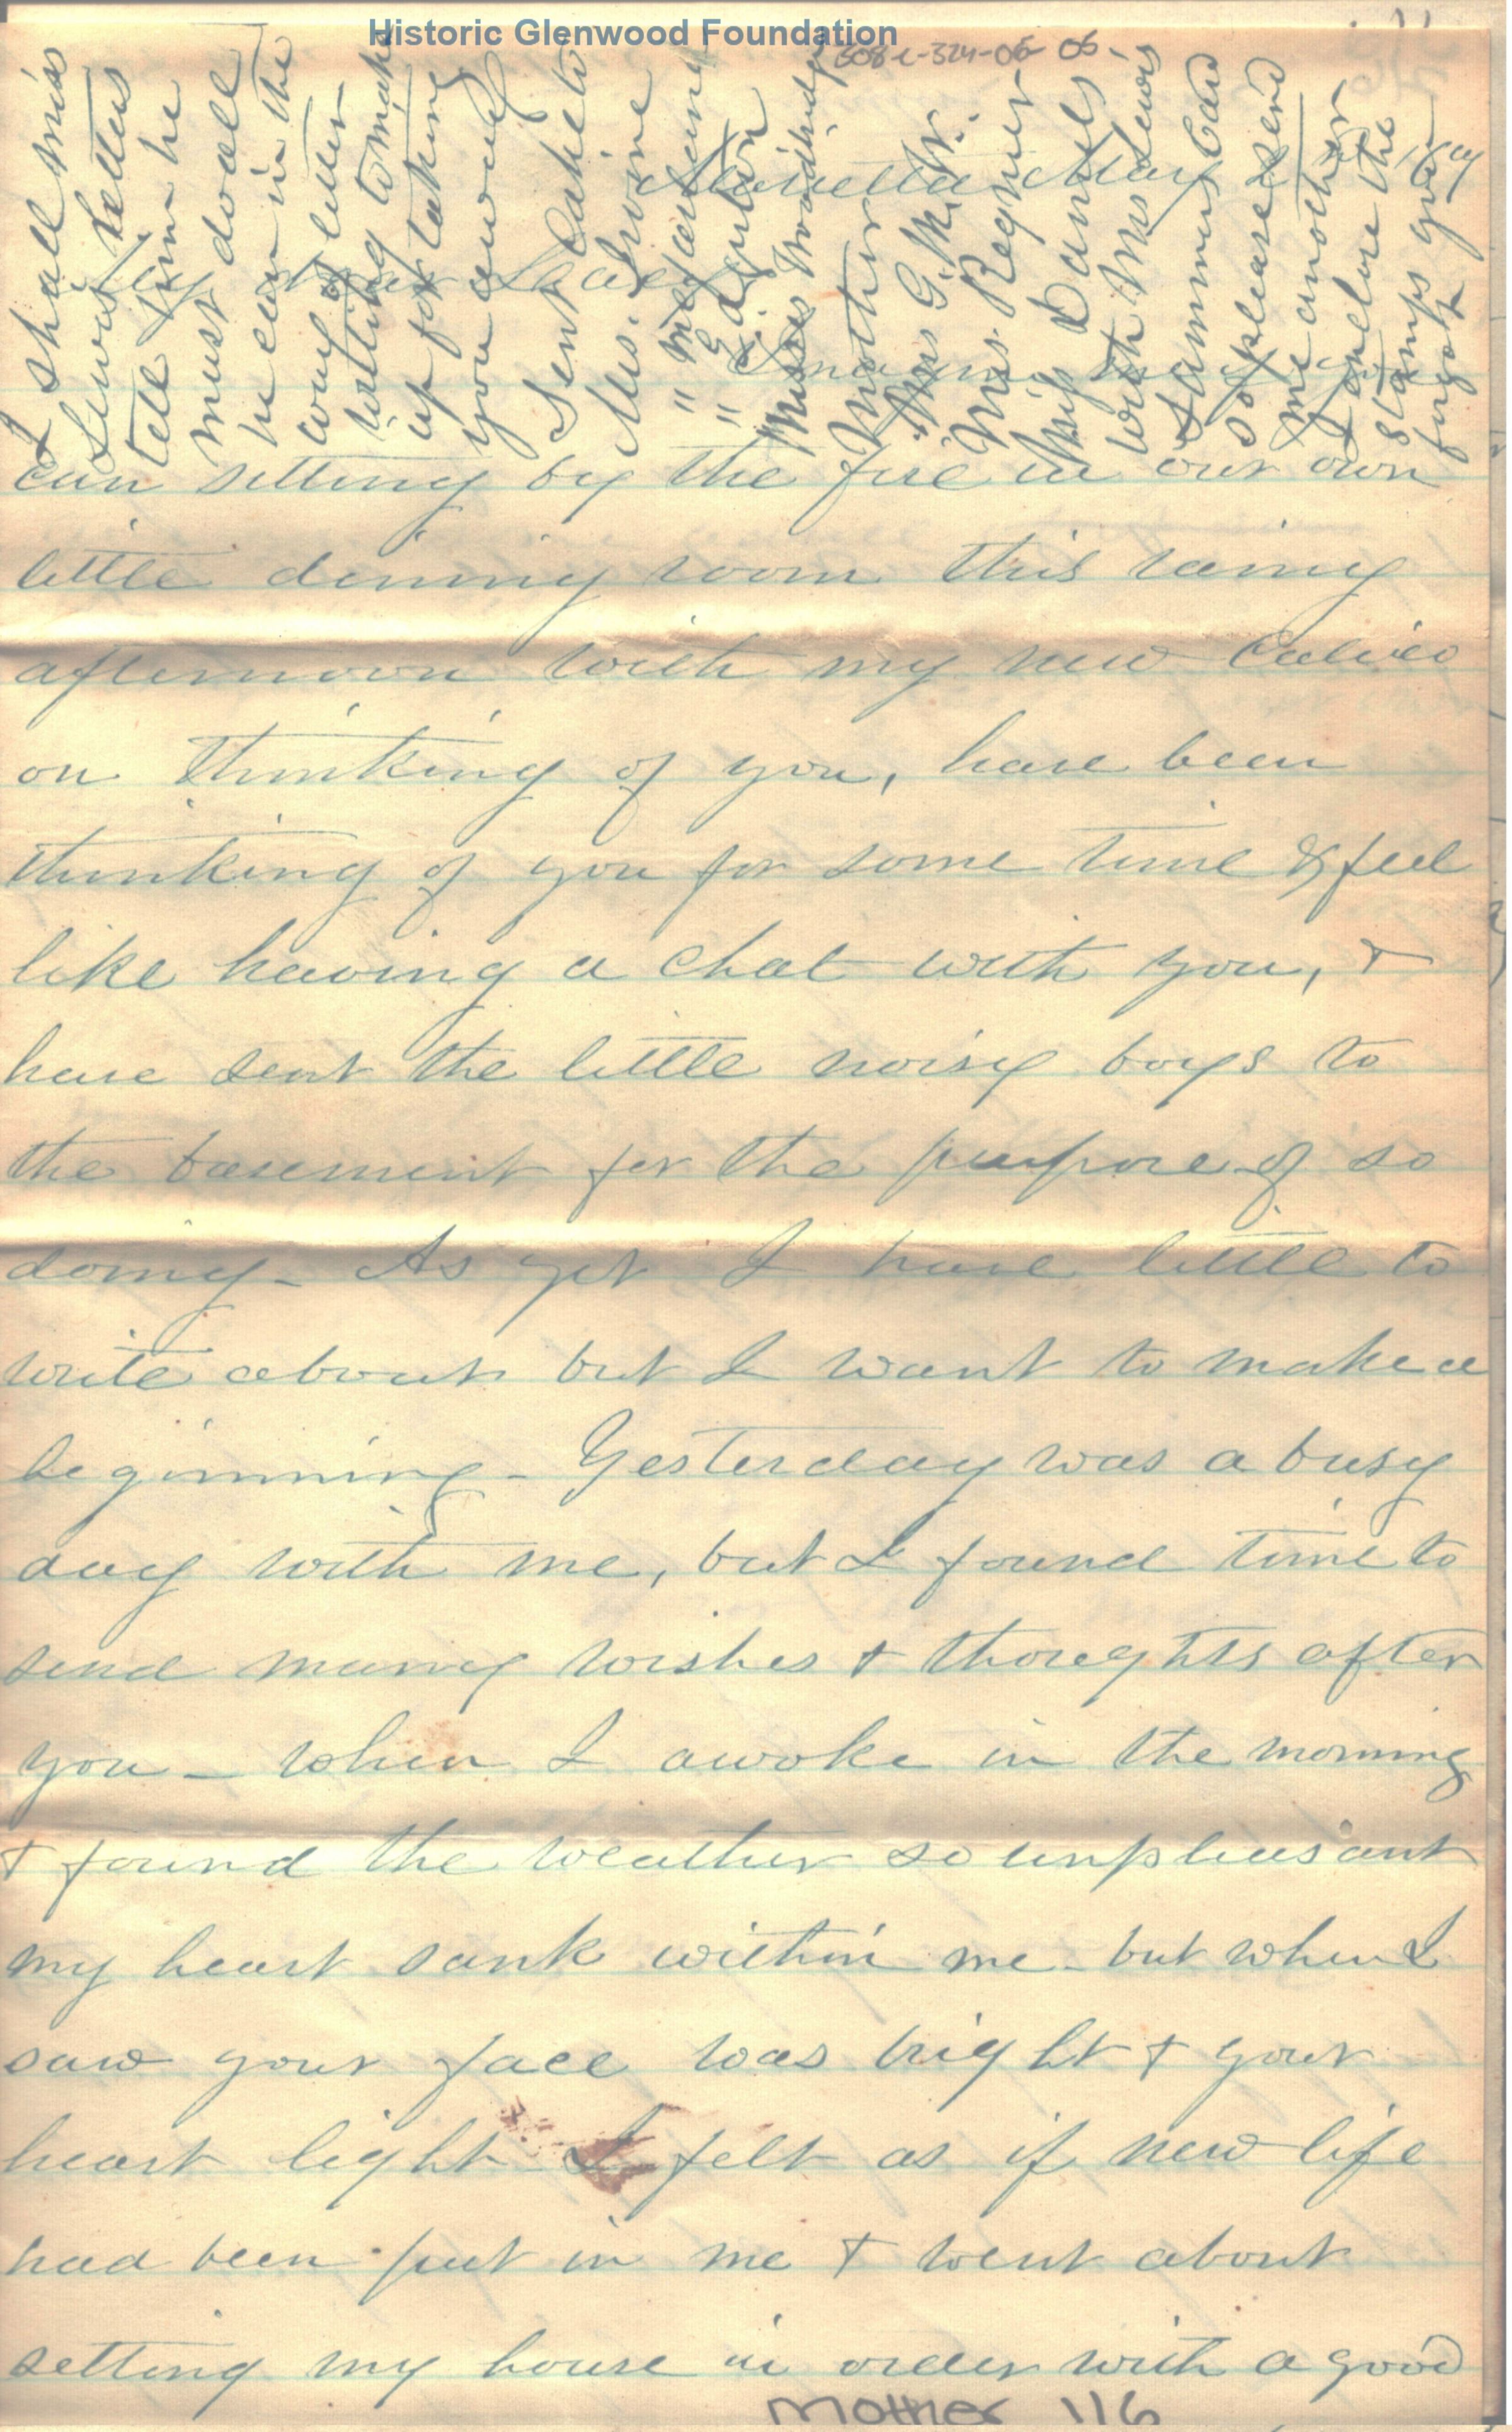 Historic Glenwood Foundation
608-2-324-05-06
Marietta May
My dear Lucy
Imagine me if you
can sitting by the fire in our own
little dinning room this rainy
afternoon with my new Calico
on thinking of you, have been
thinking of you for some time & feel
like having a chat with you, &
have sent the little noisy boys to
the basement for the purpose of so
doing - As yet I have little to
write about but I want to make a
beginning - Yesterday was a busy
day with me, but I found time to
send many wishes & thoughts after
you - when I awoke in the morning
& found the weather so unpleasant
my heart sank within me - but when I
saw your face was bright & your
heart light I felt as if new life
had been put in me & went about
setting my house in order with a good
Mother 116
I shall miss
Lewis letters
tell him he
must do all
he can in the
way of letter
writing to make
up for taking
you away
Sent Cake to
Mrs. Irvine
" 
" 
Misses Woodbridge
Mother
Mrs G. M. W.
Mrs. Regnier
Miss Daniels
with Mrs Lewis
Card
so please send
me another
I enclose the
stamps you
forgot